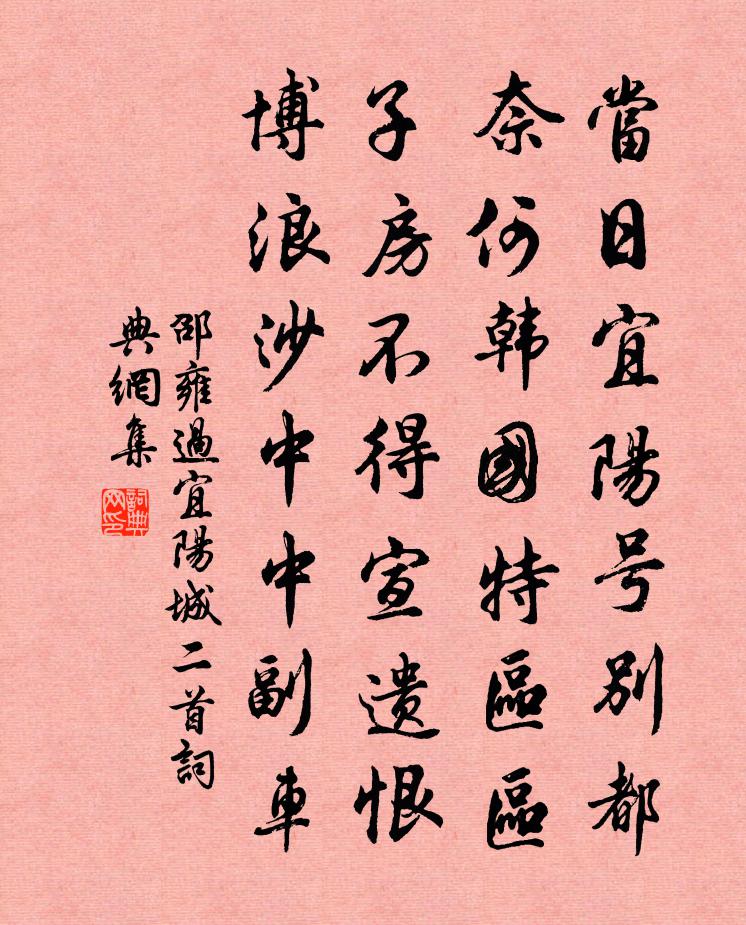 當日宜陽号別都
奈何韓國特區區
子房不得宣遺恨
博浪沙中中副車
邵雍過宜陽城二首詞
典網集
詞典
网印